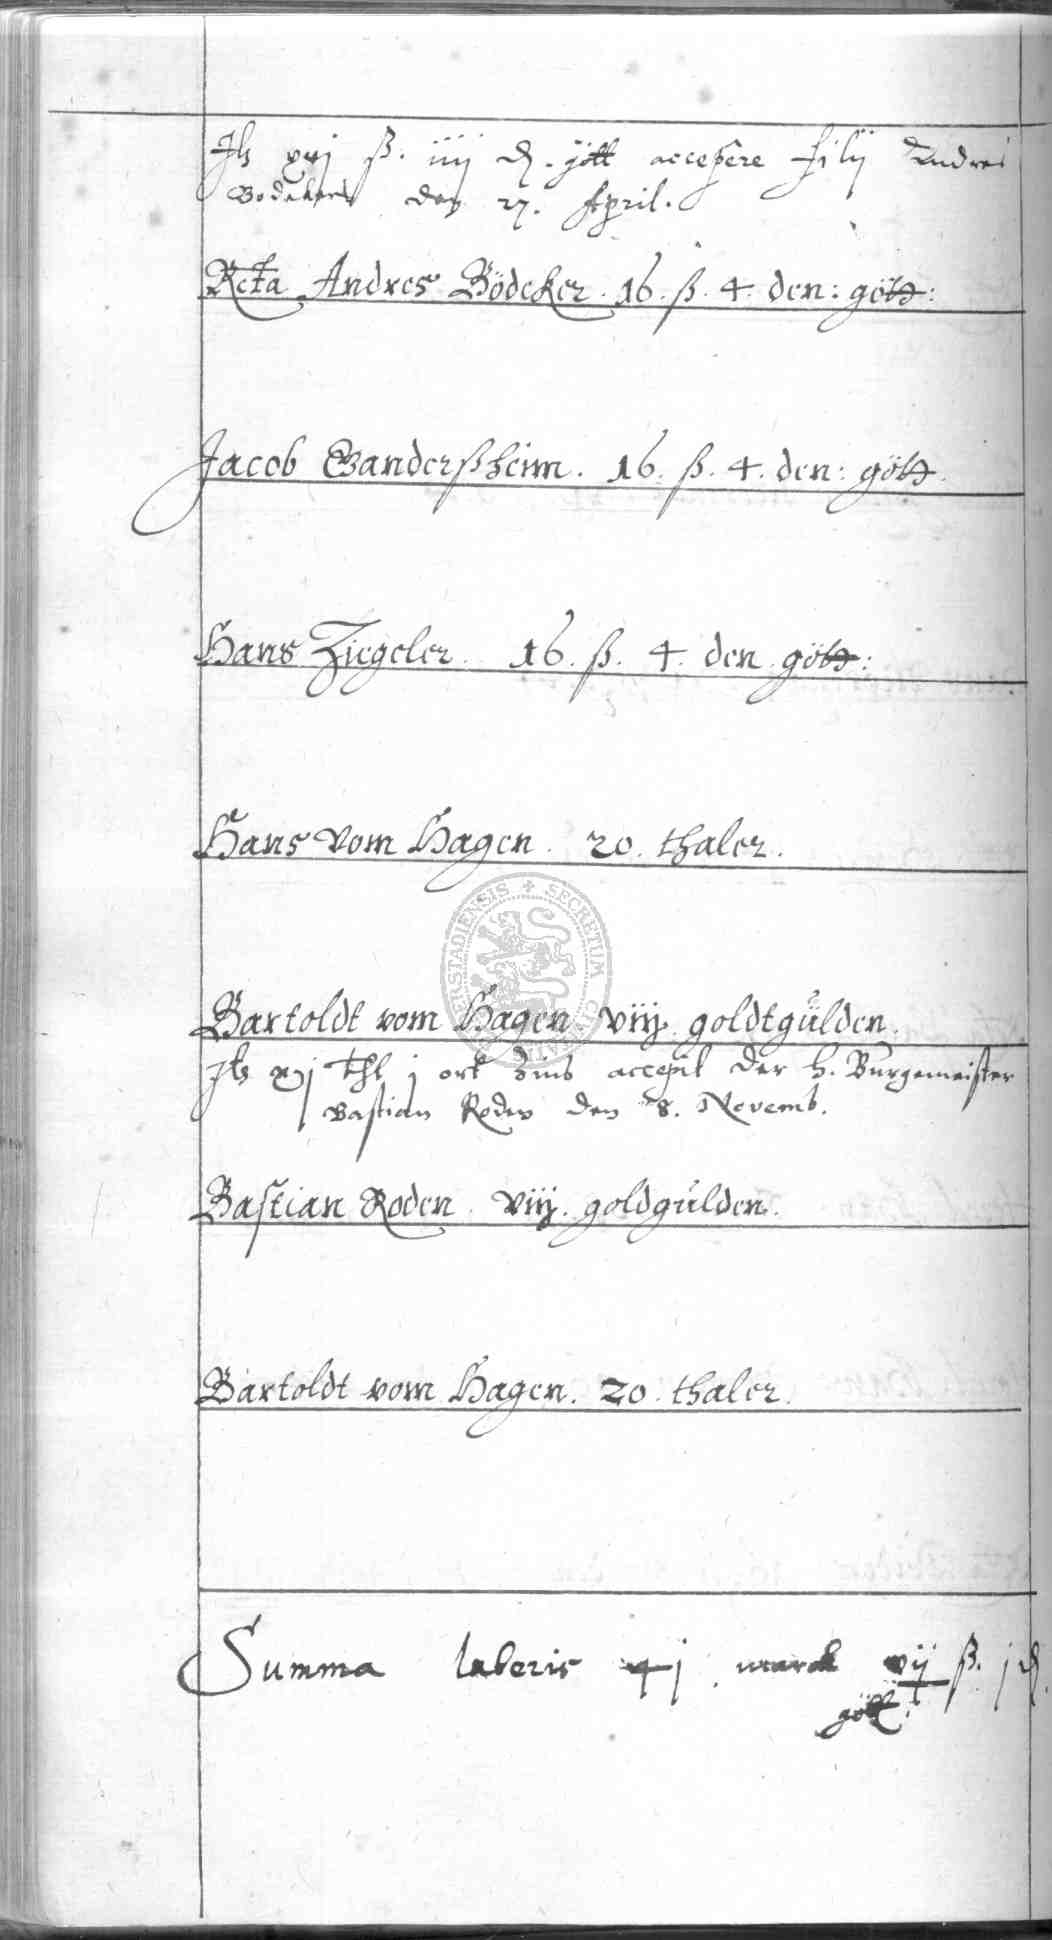 xvj ß. iiij ₰. gött accepere filij Andres
Bodekers den 27. April.
Relicta Andres Bödeker. 16. ß. 4. den: gött:
Jacob Ganderßheim. 16. ß. 4. den: gött.
Hans Ziegeler. 16. ß. 4. den gött:
Hans vom Hagen. 20. thaler.
Bartoldt vom Hagen. viij. goldtgülden.
thl j ort zins accepit der h. Burgemeister
Bastian Roden den 8. Novemb.
Bastian Roden. viij. goldgulden.
Bartoldt vom Hagen. 20. thaler.
Summa lateris marck vij ß. j ₰.
gött.
SECRETUM